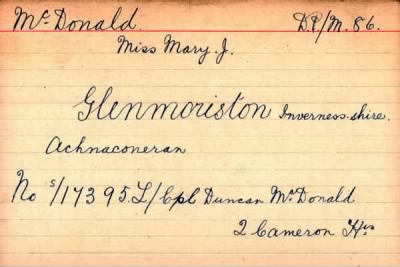 McDonald. D.P/M. 86.
Miss Mary. J.
Glenmoriston Inverness-shire.
Achnaconeran
No S/17395. L/Cpl Duncan McDonald
2 Cameron Hrs